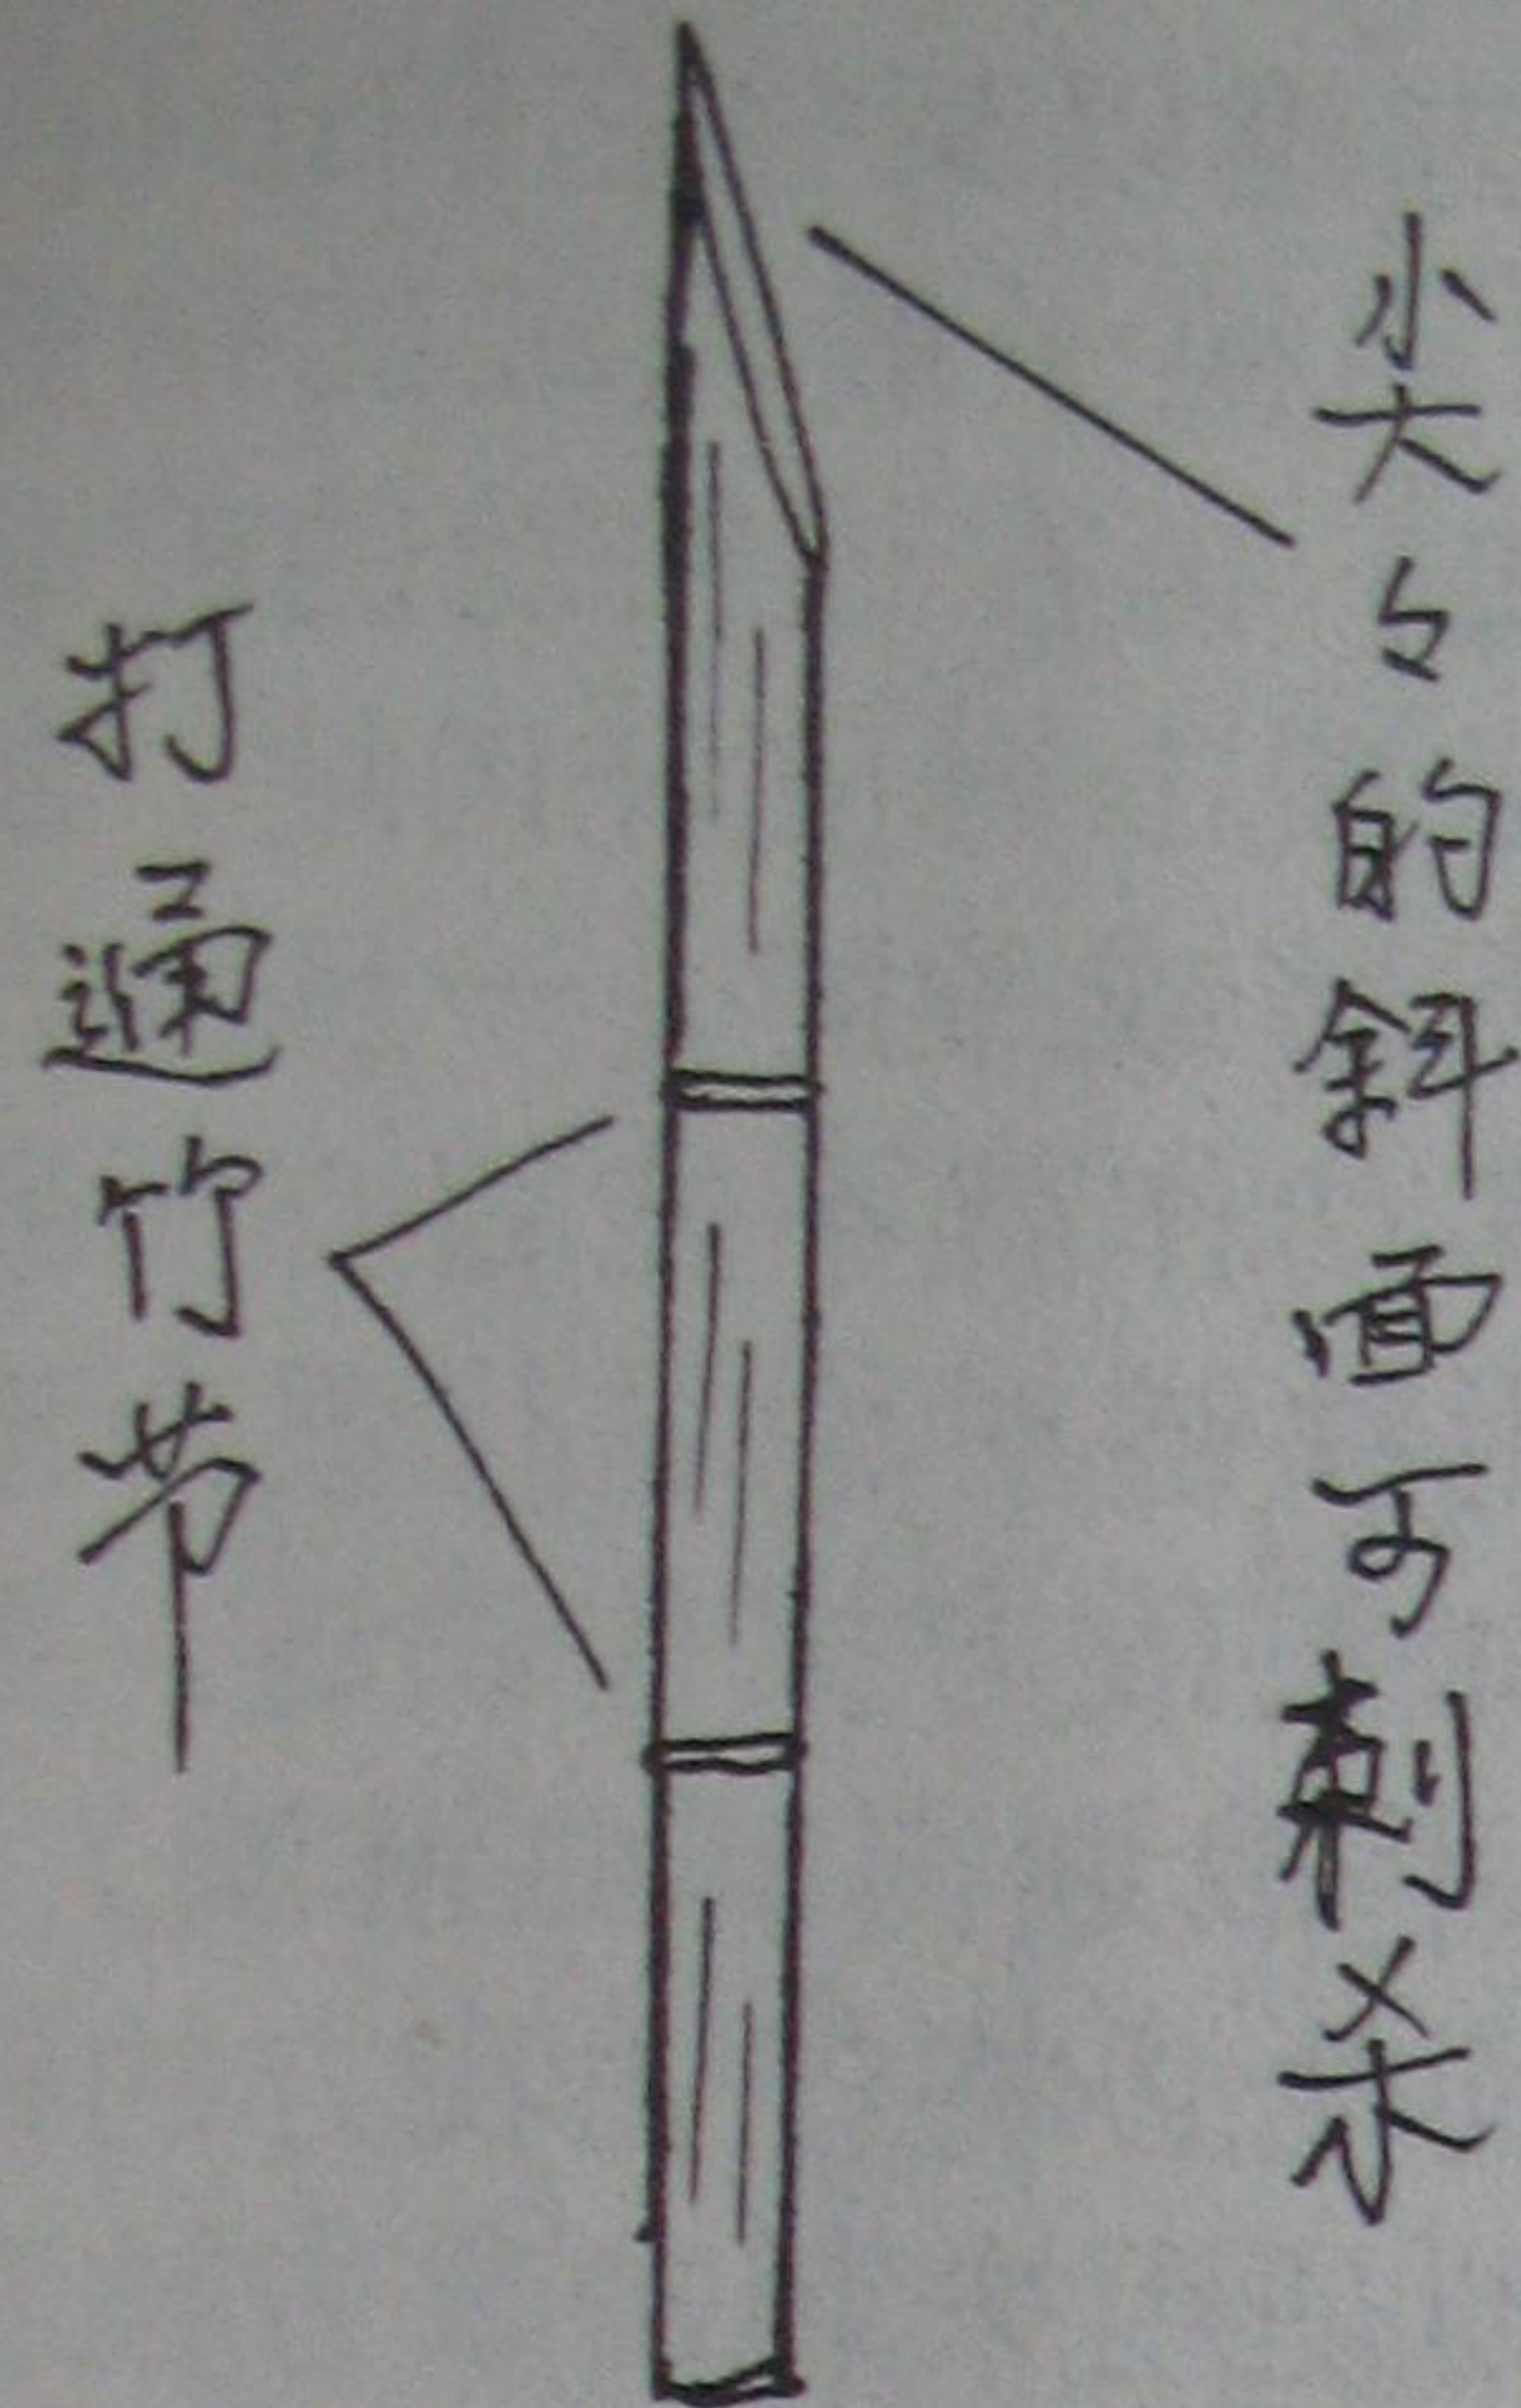 尖々的斜面可刺杀
打通竹节